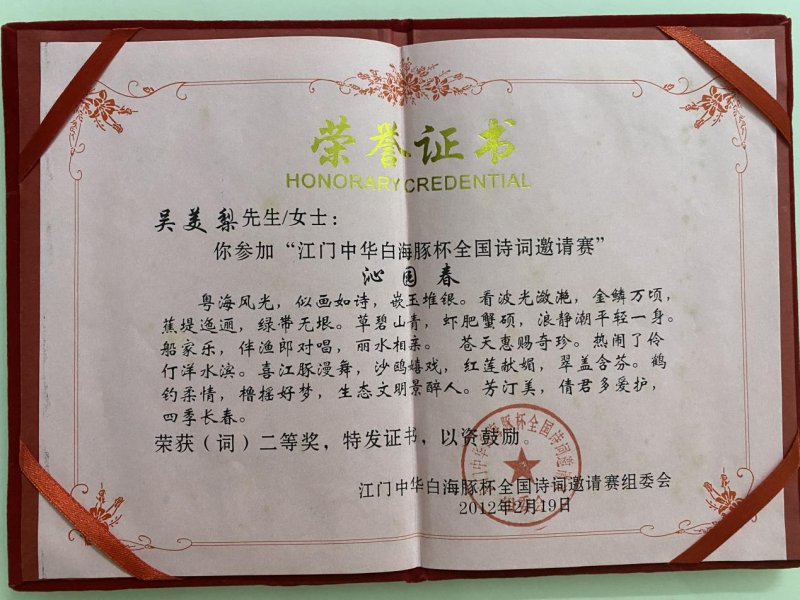 荣誉证书
HONORARY CREDENTIAL
吴美梨先生/女士：
你参加“江门中华白海豚杯全国诗词邀请赛”
沁园春
粤海风光，似画如诗，嵌玉堆银。看波光潋滟，金鳞万顷，
蕉堤迤逦，绿带无垠。草碧山青，虾肥蟹硕，浪静潮平轻一身。
船家乐，伴渔郎对唱，丽水相亲。 苍天惠赐奇珍。热闹了伶
仃洋水滨。喜江豚漫舞，沙鸥嬉戏，红莲献媚，翠盖含芬。鹤
钓柔情，橹摇好梦，生态文明景醉人。芳汀美，倩君多爱护，
四季长春。
荣获（词）二等奖，特发证书，以资鼓励。
江门中华白海豚杯全国诗词邀请赛组委会
2012年2月19日